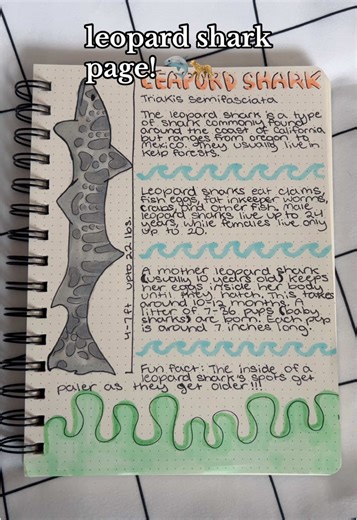 leopard shark
page!
LEAPORD SHARK
Triakis semifasciata
The leopard shark is a type
of shark commonly found
around the coast of California
but ranges from Oregon to
Mexico. They usually live in
kelp forests.
Leopard sharks eat clams,
fish eggs, fat innkeeper worms,
crabs, and other fish. Male
leopard sharks live up to 24
years, while females live only
up to 20.
A mother leopard shark
(usually 10 years old) keeps
eggs inside her body
until they hatch. This takes
around 10-12 months. A
litter of 7-36 pups (baby
sharks) are born. Each pup
is around 7 inches long.
Fun fact: The inside of a
leopard shark's spots get
paler as they get older!!!
4-7ft upto 22 lbs.